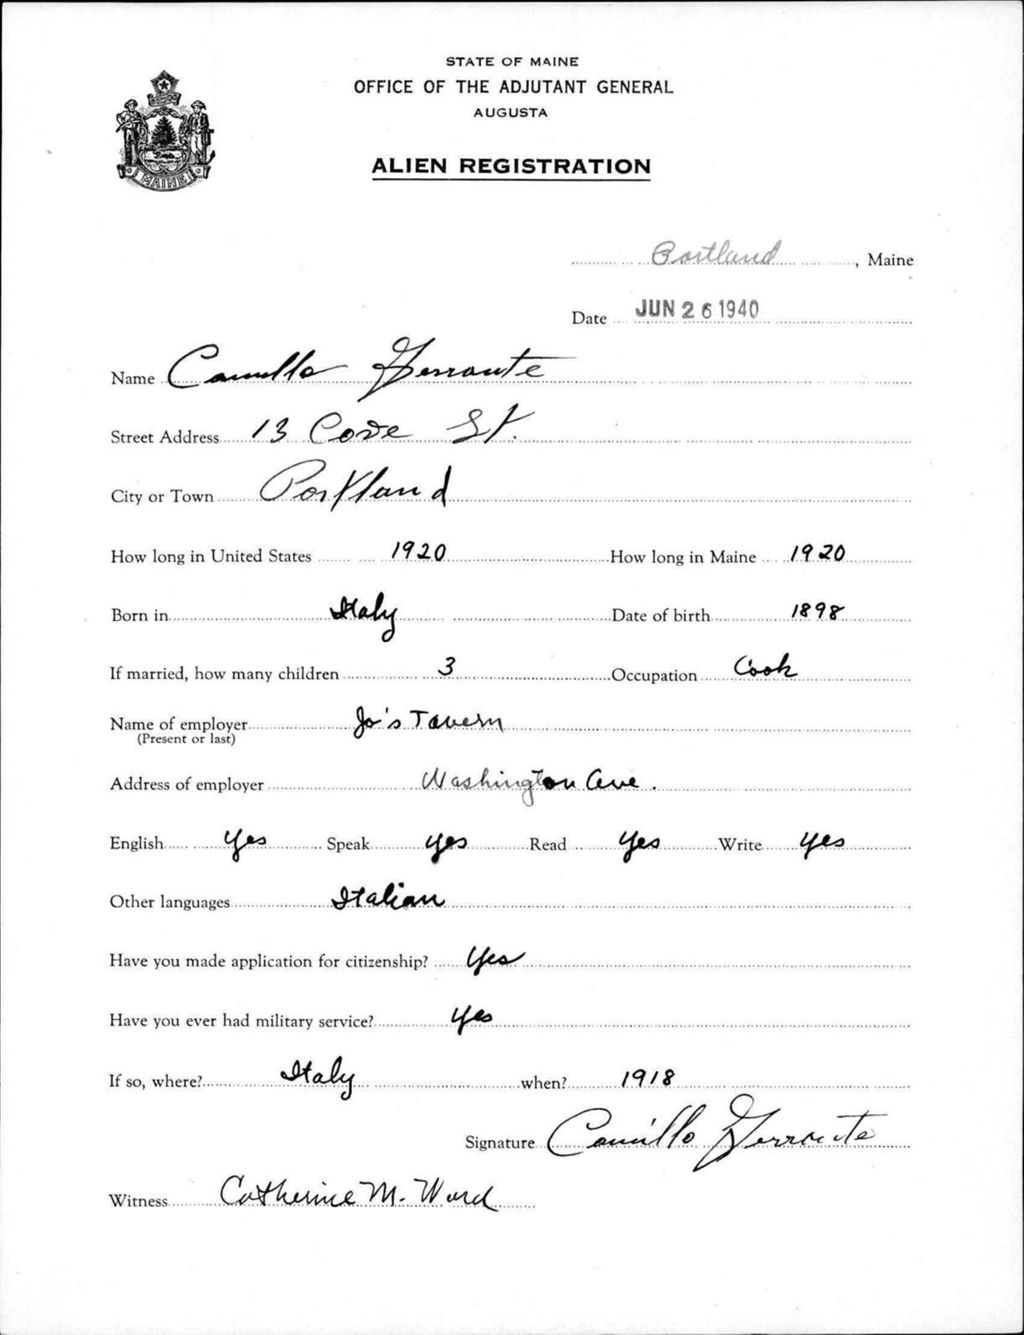 STATE OF MAINE
OFFICE OF THE ADJUTANT GENERAL
AUGUSTA
ALIEN REGISTRATION
MAINE
Portland, Maine
Date JUN 26 1940
Name Camillo
Street Address 13 Cove St.
City or Town Portland
How long in United States 1920 How long in Maine 1920
Born in Italy Date of birth 1898
If married, how many children 3 Occupation Cook
Name of employer Jo's Tavern
(Present or last)
Address of employer Washington Ave.
English yes Speak yes Read yes Write yes
Other languages Italian
Have you made application for citizenship? Yes
Have you ever had military service? yes
If so, where? Italy when? 1918
Signature Camillo
Witness Catherine M. Ward